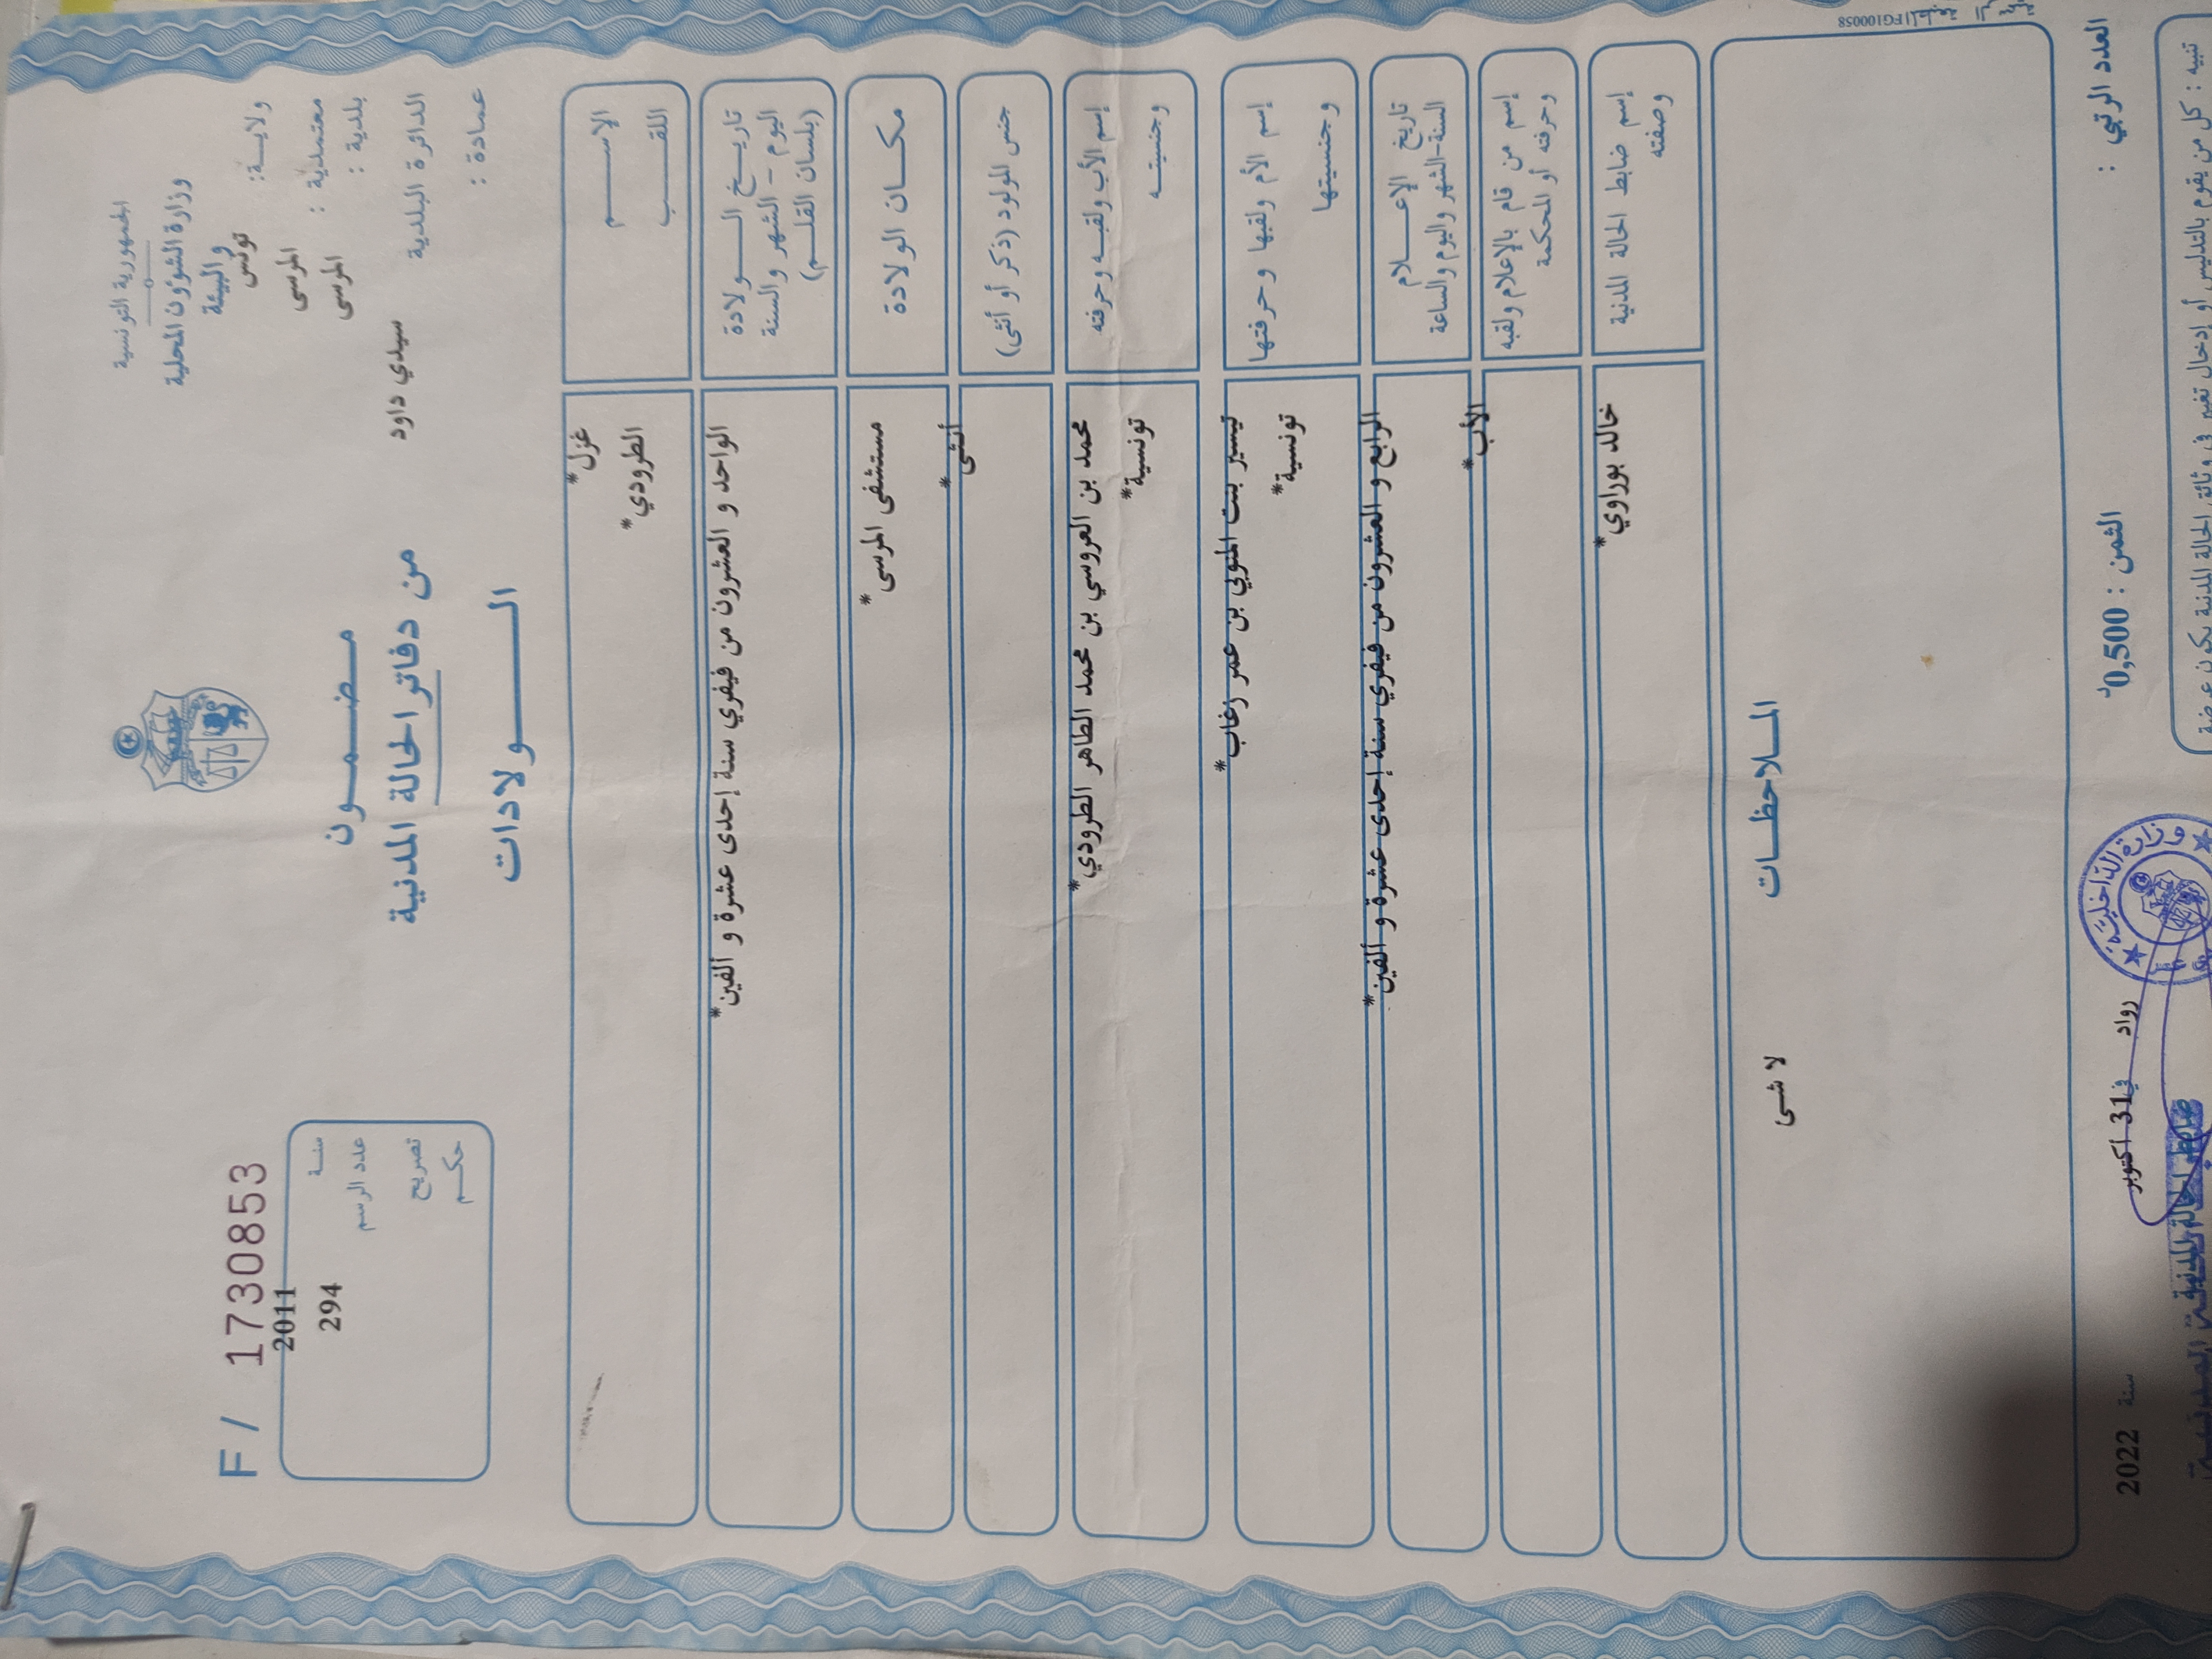 الجمهورية التونسية
وزارة الشؤون المحلية
و البيئة
ولايـــة: تونس
معتمدية : المرسى
بلدية : المرسى
الدائرة البلدية سيدي داود
عمادة :
مـضـمـــون
من دفاتر الحالة المدنية
الـــــولادات
F / 17308853
سنــة 2011
عدد الرسم 294
تصريح
حكـــم
الاســـــم غزل*
اللقـــــب الطرودي*
تاريـــخ الـــولادة
اليوم - الشهر والسنة
(بلسان القلـــم)
الواحد و العشرون من فيفري سنة إحدى عشرة و ألفين*
مكـــان الولادة مستشفى المرسى*
جنس المولود (ذكر أو أنثى) أنثى*
إسم الأب ولقبـــه وحرفته محمد بن العروسي بن محمد الطاهر الطرودي*
وجنسيتـــه تونسية*
إسم الأم ولقبها وحرفتها تيسير بنت المنوبي بن عمر زغاب*
وجنسيتها تونسية*
تاريخ الإعـــلام
السنة-الشهر واليوم والساعة
الرابع و العشرون من فيفري سنة إحدى عشرة و ألفين*
إسم من قام بالإعلام ولقبه
وحرفته أو المحكمة
الأب*
إسم ضابط الحالة المدنية
وصفته
خالد بوراوي*
المـــلاحظـــات
لا شى
العدد الرتبي :
الثمن : 0,500د
رواد في 31 اكتوبر سنة 2022
ضابط الحالة المدنية
وزارة الداخلية
تنبيه : كل من يقوم بالتدليس أو إدخال تغيير في وثائق الحالة المدنية يكون عرضة
FG100058